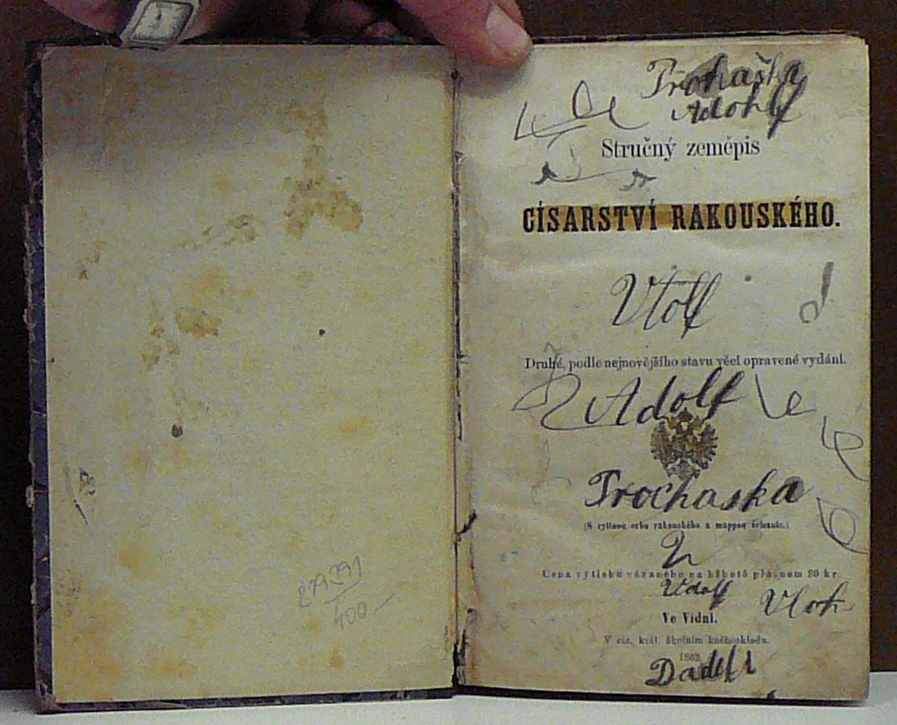 Prohaška
Adohlf
Stručný zeměpis
CÍSARSTVÍ RAKOUSKÉHO.
Vtolf
Druhé, podle nejnovějšího stavu věcí opravené vydání.
Adolf
Prochaska
(S rytinou orbu rakouského a mappou železnic.)
Cena výtisku vázaného na hřbetě plátnom 80 kr
Udolf
Vloh
Ve Vídni.
V cís. král. školním kněhoskladu.
Dadelt
400